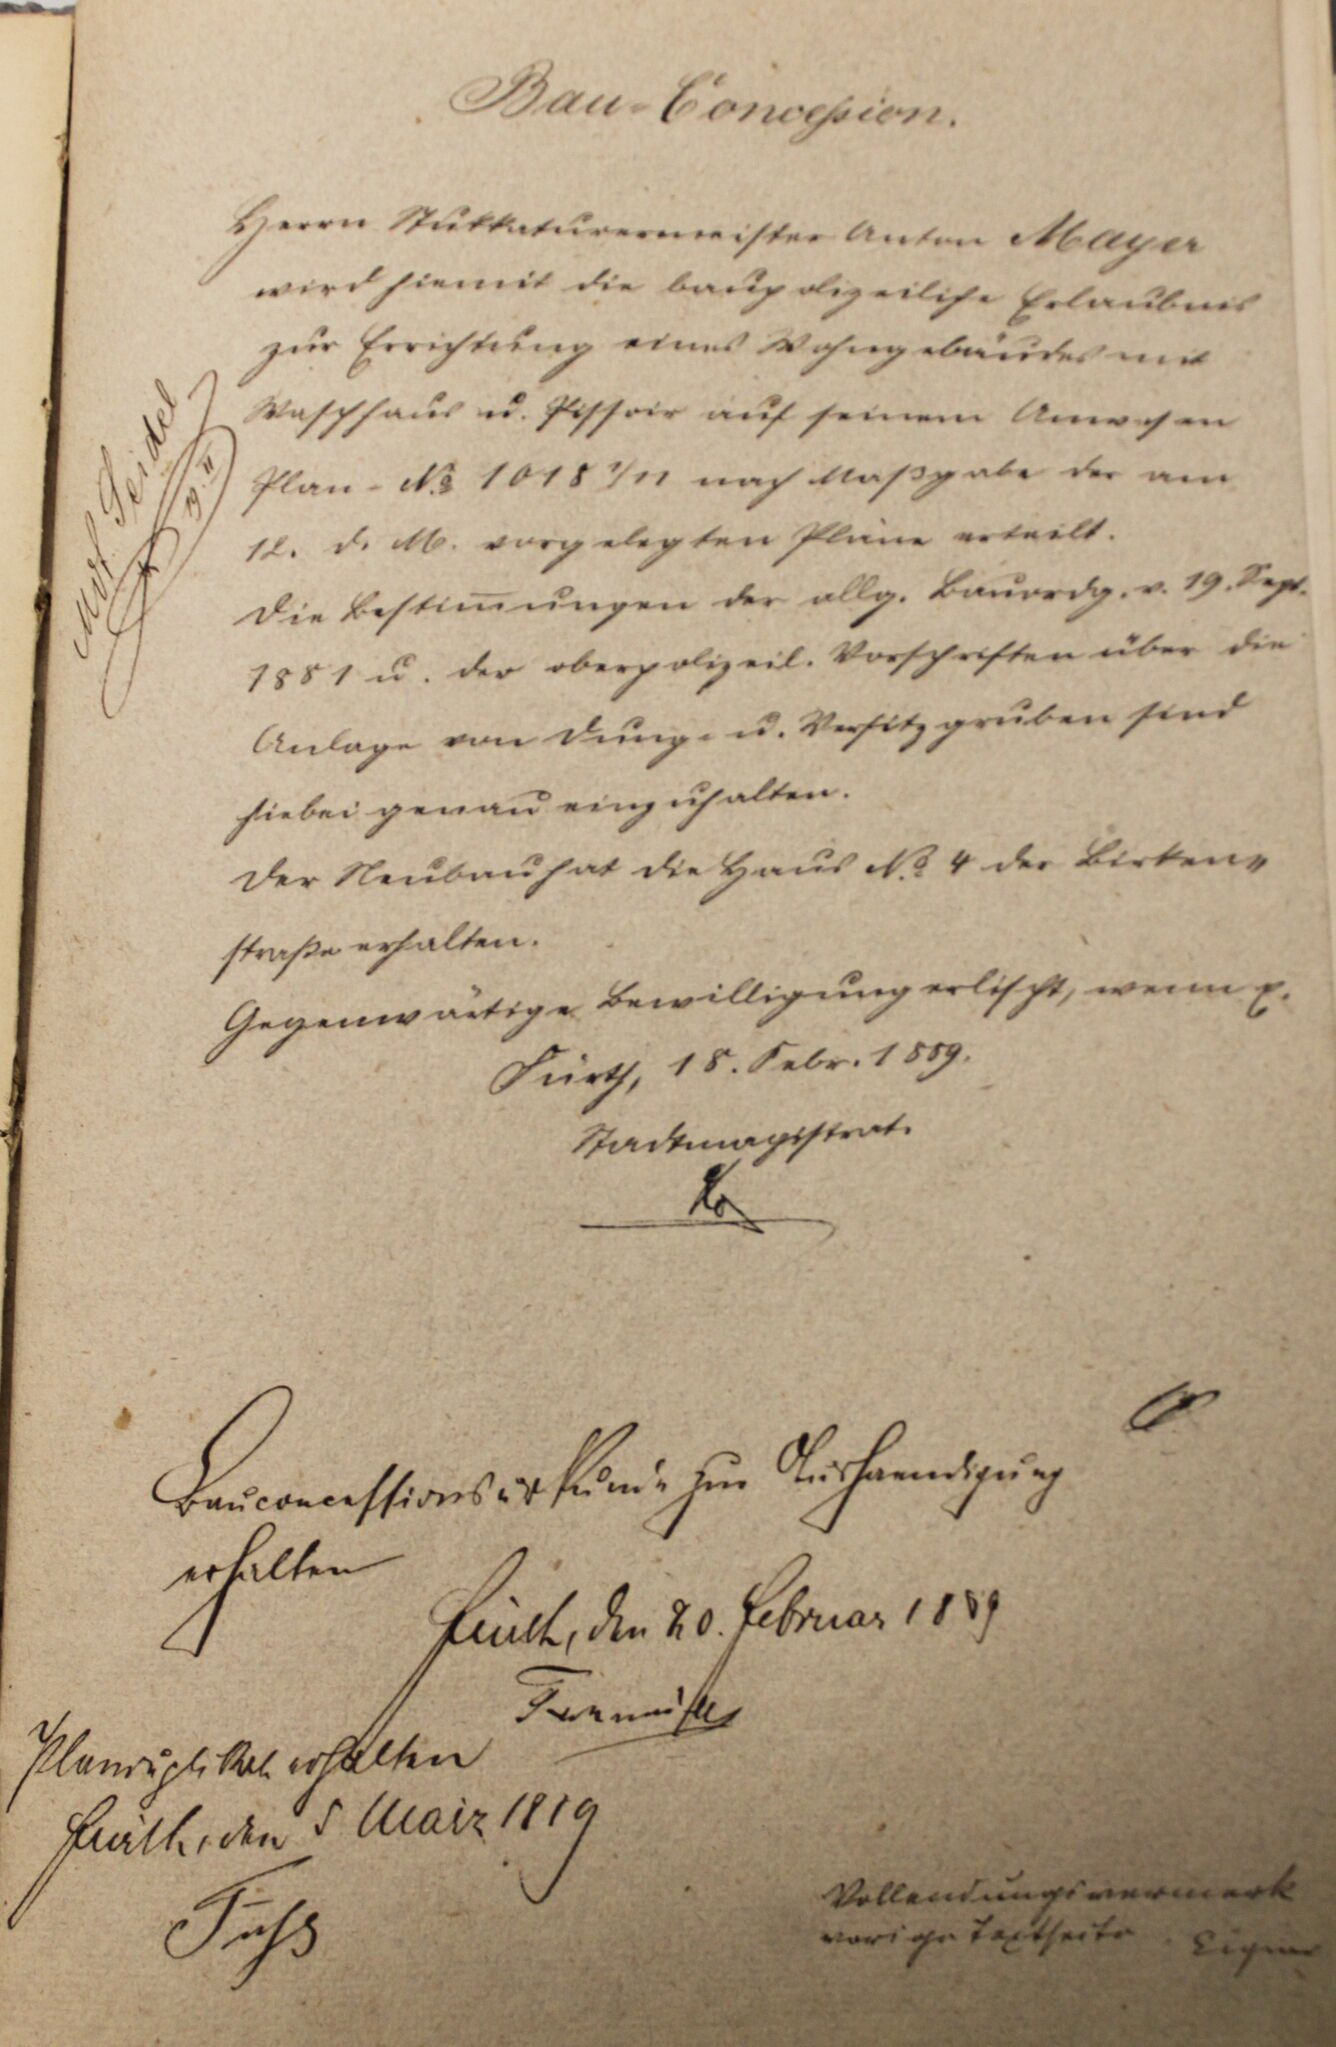 Bau-Concession.
Herrn Stukkaturermeister Anton Mayer
wird hiemit die baupolizeiliche Erlaubnis
zur Errichtung eines Wohngebäudes mit
Waschhaus u. Pissoir auf seinem Anwesen
Plan-No 1018 1/11 nach Maßgabe der am
12. d. M. vorgelegten Pläne erteilt.
Die Bestimmungen der allg. Bauordg. v. 19. Sept.
1881 u. der oberpolizeil. Vorschriften über die
Anlage von Dung- u. Versitzgruben sind
hiebei genau einzuhalten.
Der Neubau hat die Haus No 4 der Birken-
straße erhalten.
Gegenwärtige Bewilligung erlischt, wenn p.
Fürth, 18. Febr. 1889.
Stadtmagistrat.
Seidel
19. II
Bauconcessionsurkunde zur Aushaendigung
erhalten
Fürth, den 20. Februar 1889
Planduplikat erhalten
Fürth, den 5 März 1889
Vollendungsvermerk
vorige Textseite